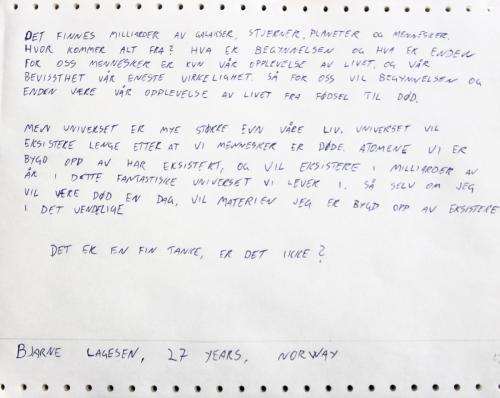 DET FINNES MILLIARDER AV GALAKSER, STJERNER, PLANETER OG MENNESKER.
HVOR KOMMER ALT FRA? HVA ER BEGYNNELSEN OG HVA ER ENDEN
FOR OSS MENNESKER ER KUN VÅR OPPLEVELSE AV LIVET, OG VÅR
BEVISSTHET VÅR ENESTE VIRKELIGHET. SÅ FOR OSS VIL BEGYNNELSEN OG
ENDEN VÆRE VÅR OPPLEVELSE AV LIVET FRA FØDSEL TIL DØD.
MEN UNIVERSET ER MYE STØRRE ENN VÅRE LIV. UNIVERSET VIL
EKSISTERE LENGE ETTER AT VI MENNESKER ER DØDE. ATOMENE VI ER
BYGD OPP AV HAR EKSISTERT, OG VIL EKSISTERE I MILLIARDER AV
ÅR I DETTE FANTASTISKE UNIVERSET VI LEVER I. SÅ SELV OM JEG
VIL VÆRE DØD EN DAG, VIL MATERIEN JEG ER BYGD OPP AV EKSISTERE
I DET UENDELIGE
DET ER EN FIN TANKE, ER DET IKKE?
BJARNE LAGESEN, 27 YEARS, NORWAY